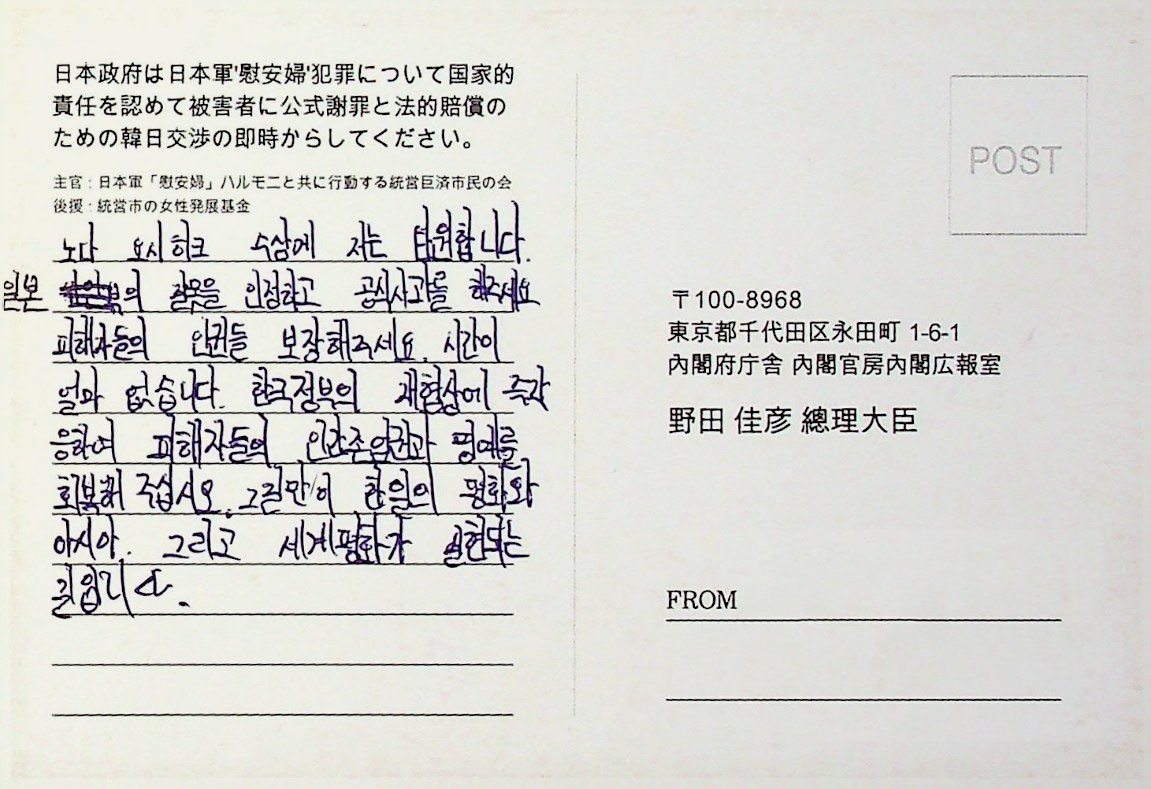 日本政府は日本軍'慰安婦'犯罪について国家的
責任を認めて被害者に公式謝罪と法的賠償の
ための韓日交渉の即時からしてください。
主官 : 日本軍「慰安婦」ハルモニと共に行動する統営巨済市民の会
後援 : 統営市の女性発展基金
노다 요시히크 수상에 저는 탄원합니다.
일본의 잘못을 인정하고 공식사과를 해주세요
피해자들의 인권들 보장해주세요. 시간이
얼마 없습니다. 한국정부의 재협상에 즉각
응하여 피해자들의 인간존엄권과 명예를
회복해 주십시오. 그길만이 한일의 평화와
아시아. 그리고 세계평화가 실현되는
길입니다.
POST
〒100-8968
東京都千代田区永田町 1-6-1
內閣府庁舎 內閣官房內閣広報室
野田 佳彦 總理大臣
FROM